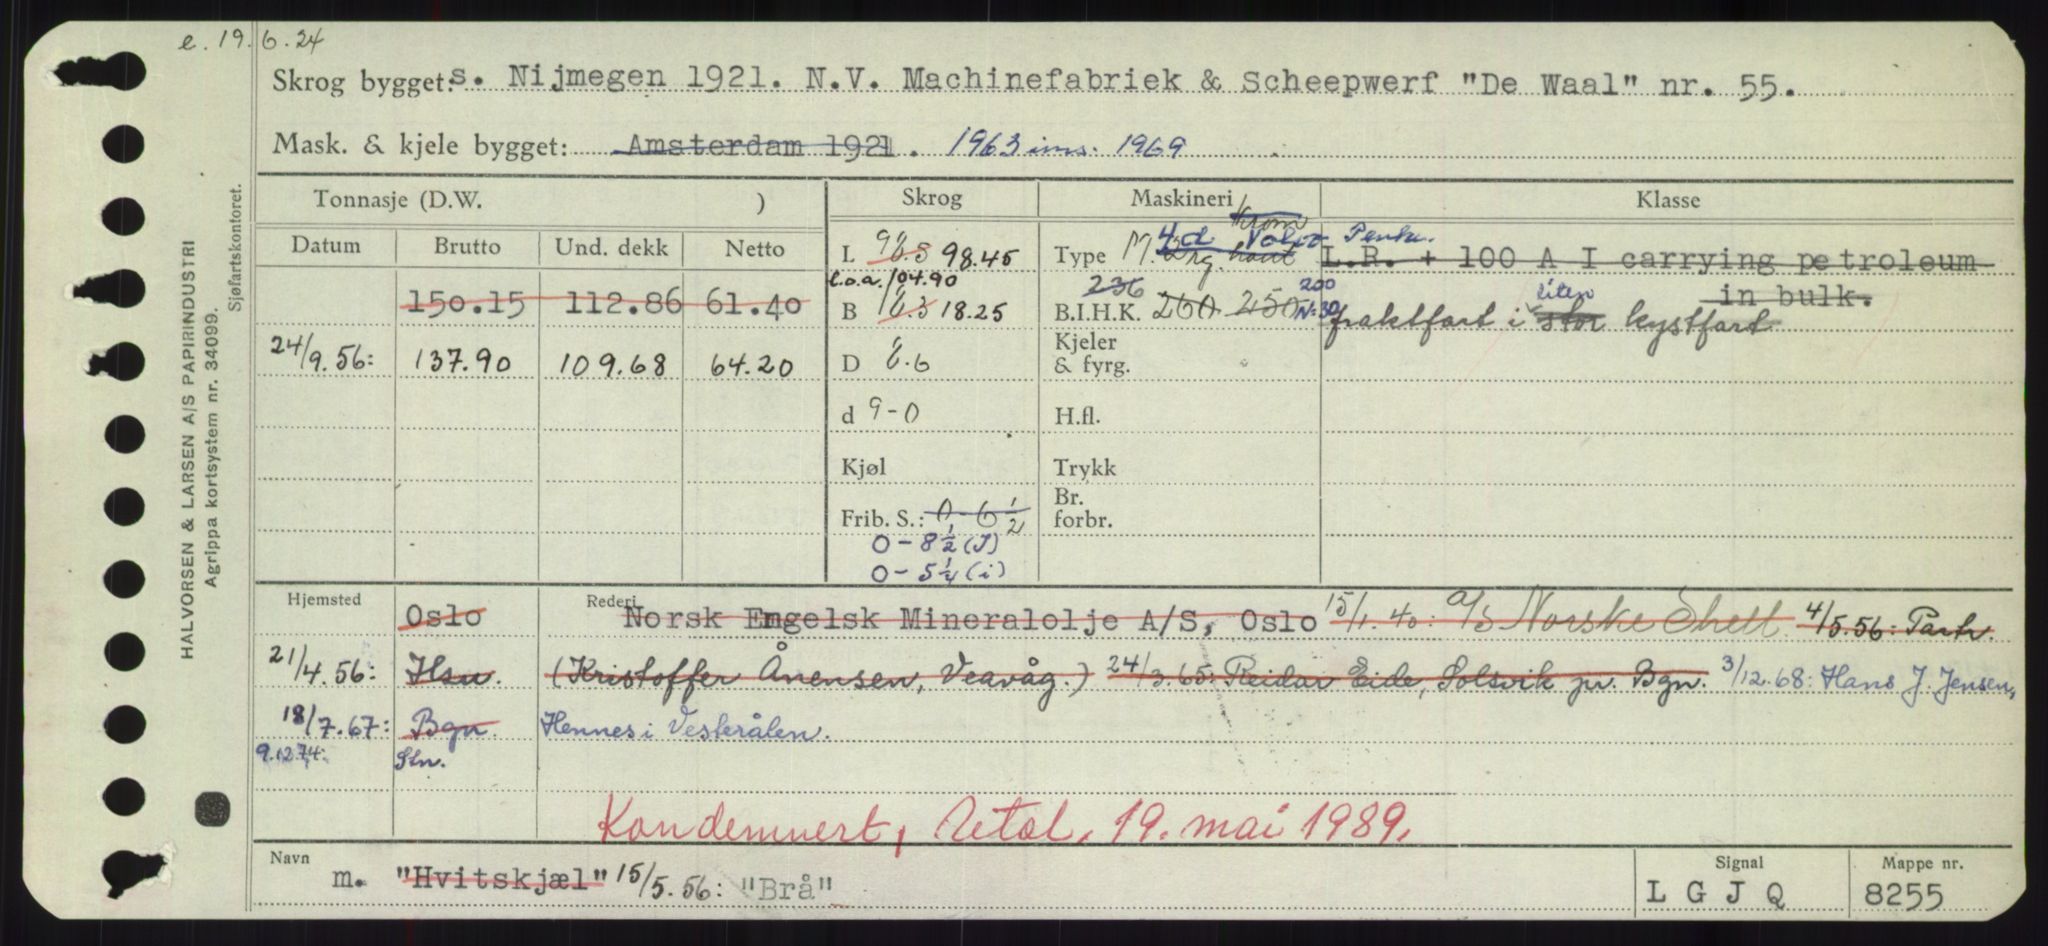 e. 19.6.24
Skrog bygget: s. Nijmegen 1921. N.V. Machinefabriek & Scheepwerf "De Waal" nr. 55.
Mask. & kjele bygget: Amsterdam 1921. 1963 ins. 1969
Tonnasje (D.W. ) Skrog Maskineri Klasse
Datum Brutto Und. dekk Netto
L 98.45 Type
l.o.a. 104.90
L.R. + 100 A I carrying petroleum
in bulk.
150.15 112.86 61.40
B 18.25 B.I.H.K. 236 260 250 200
fraktfart i stor liten kystfart
24/9.56: 137.90 109.68 64.20
D
Kjeler
& fyrg.
d 9-0
H.fl.
Kjøl
Trykk
Frib. S.: 0-6 1/2
Br.
forbr.
0-8 1/2 (J)
0-5 1/4 (i)
Hjemsted Oslo Rederi Norsk Engelsk Mineralolje A/S, Oslo 15/1.40: a/s Norske Shell 4/5.56: Partr.
21/4.56: Hsu. (Kristoffer Ånensen, Veavåg.) 24/3.65: Reidar Eide, Solsvik pr. Bgn. 3/12.68: Hans J. Jensen,
18/7.67: Bgn. Hennes i Vesterålen.
9.12.74: Stn.
Kondemnert, 19. mai 1989.
Navn m. "Hvitskjæl" 15/5.56: "Brå"
Signal LGJQ
Mappe nr. 8255
HALVORSEN & LARSEN A/S PAPIRINDUSTRI
Agrippa kortsystem nr. 34099.
Sjøfartskontoret.